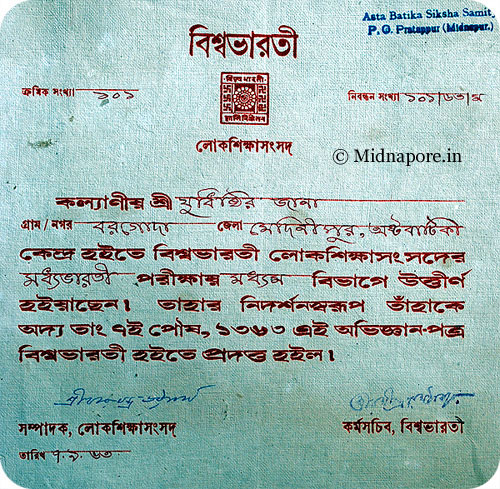 Asta Batika Siksha Samit,
P. O. Pratappur (Midnapur.)
বিশ্বভারতী
ক্রমিক সংখ্যা ১০১
নিবন্ধন সংখ্যা ১০১/৬৩/ম
লোকশিক্ষাসংসদ
© Midnapore.in
কল্যাণীয় শ্রী যুধিষ্ঠির জানা
গ্রাম / নগর বরগোদা জেলা মেদিনীপুর, অষ্টবাটিকা
কেন্দ্র হইতে বিশ্বভারতী লোকশিক্ষাসংসদের
মধ্যভারতী পরীক্ষায় মধ্যম বিভাগে উত্তীর্ণ
হইয়াছেন। তাহার নিদর্শনস্বরূপ তাঁহাকে
অদ্য তাং ৭ই পৌষ, ১৩৬৩ এই অভিজ্ঞান-পত্র
বিশ্বভারতী হইতে প্রদত্ত হইল।
সম্পাদক, লোকশিক্ষাসংসদ
কর্মসচিব, বিশ্বভারতী
তারিখ ৭.৯.৬৩